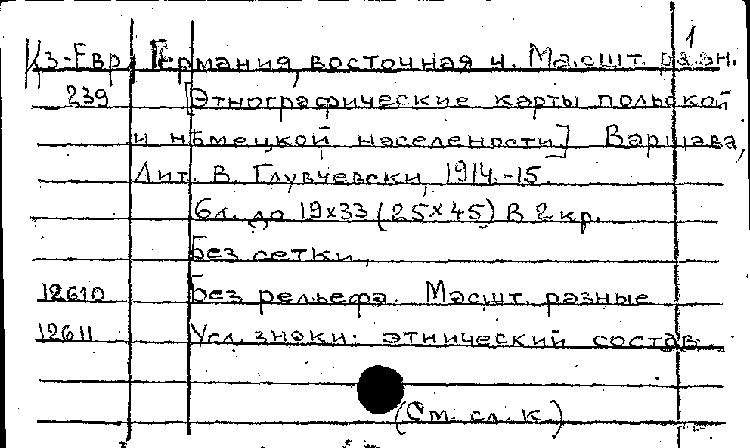 1
Кз-Евр Германия, восточная ч. Масшт. разн.
239 [Этнографические карты польской
и немецкой населенности] Варшава,
Лит. В. Глувчевски, 1914.-15.
6л. до 19х33 (25х45) В 2 кр.
Без сетки,
12610 Без рельефа. Масшт. разные
12611 Усл. знаки: этнический состав
(См. сл. к.)